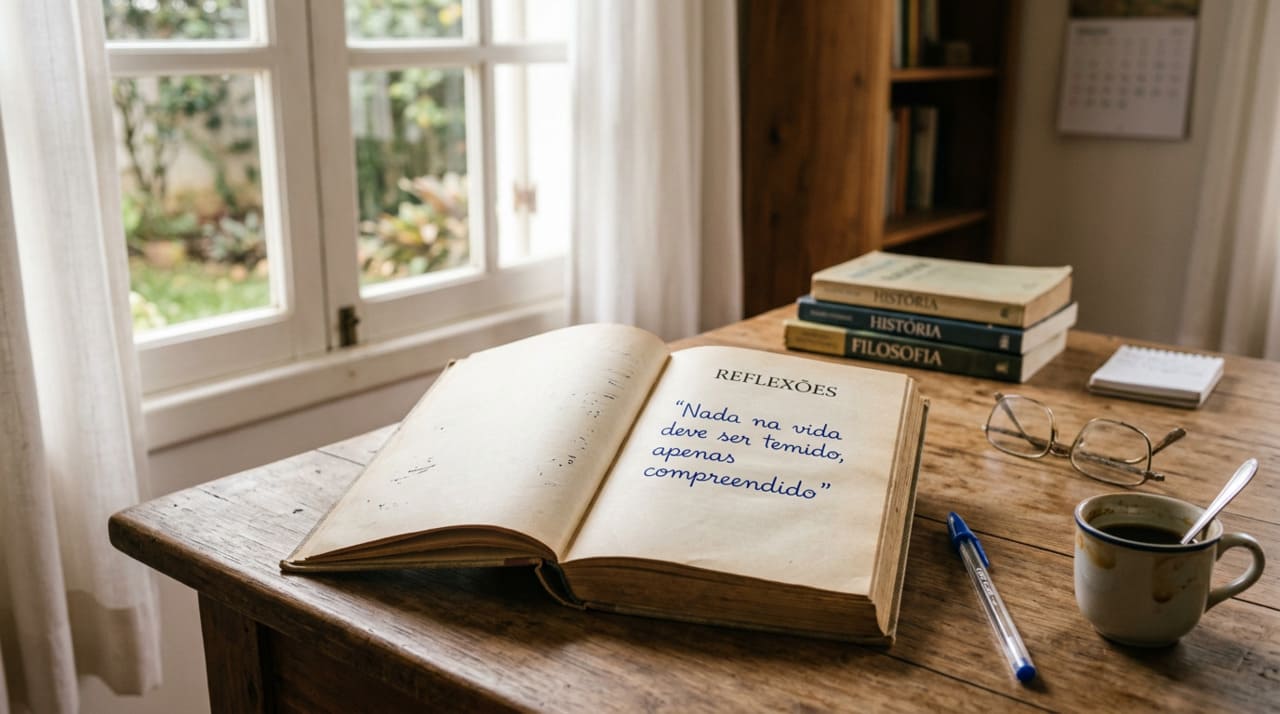 REFLEXÕES
“Nada na vida
deve ser temido,
apenas
compreendido”
HISTÓRIA
HISTÓRIA
FILOSOFIA